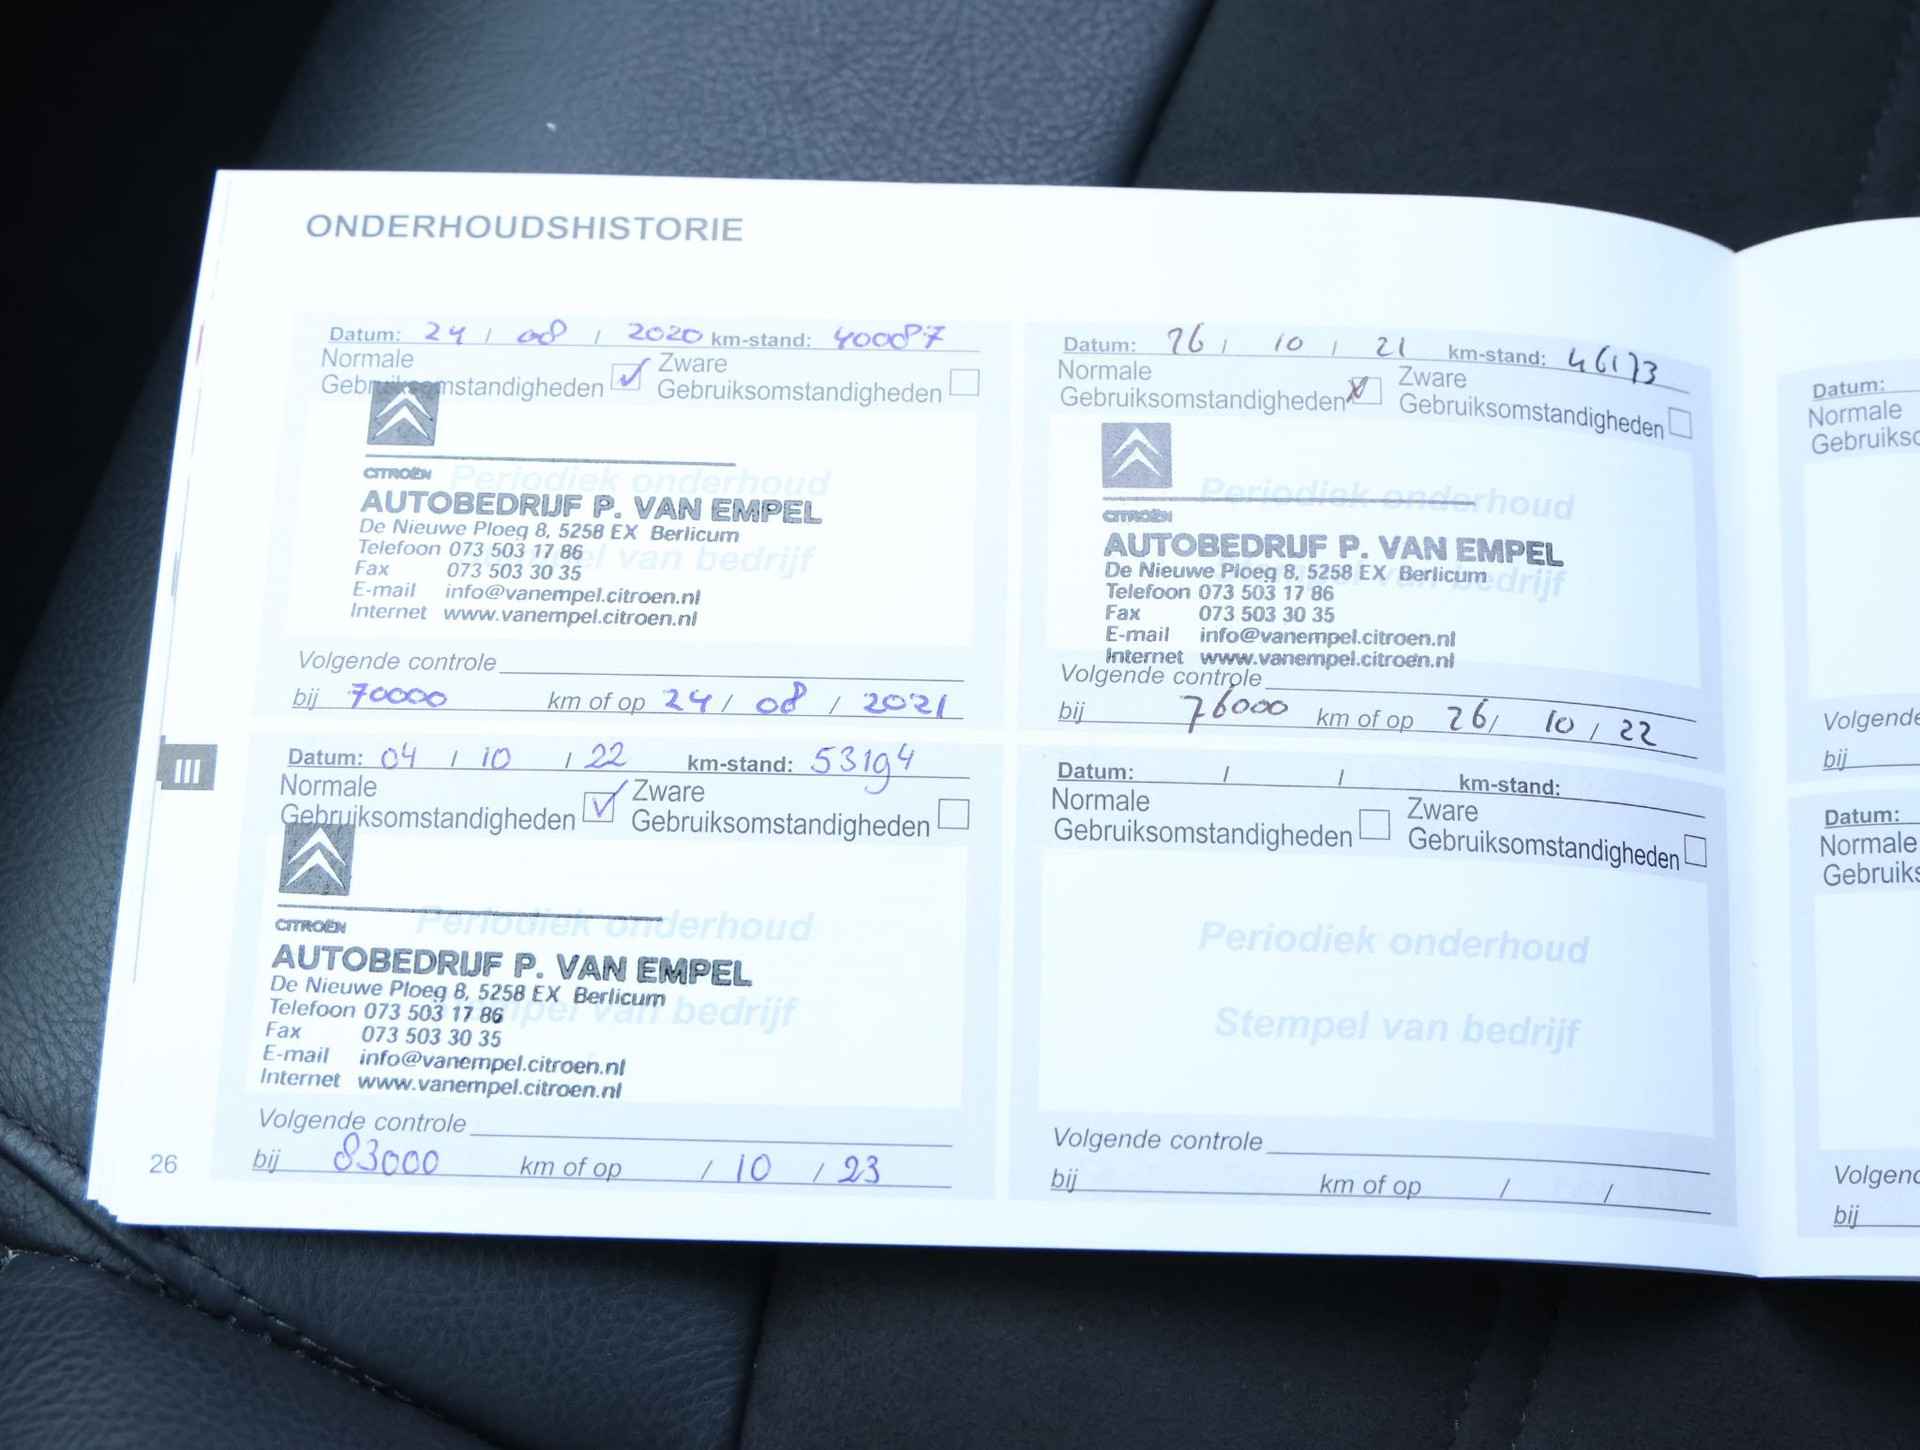 ONDERHOUDSHISTORIE
Datum: 24 / 08 / 2020 km-stand: 40087
Normale Zware
Gebruiksomstandigheden Gebruiksomstandigheden
CITROËN
Periodiek onderhoud
AUTOBEDRIJF P. VAN EMPEL
De Nieuwe Ploeg 8, 5258 EX Berlicum
Telefoon 073 503 17 86
Stempel van bedrijf
Fax 073 503 30 35
E-mail info@vanempel.citroen.nl
Internet www.vanempel.citroen.nl
Volgende controle
bij 70000 km of op 24 / 08 / 2021
Datum: 26 / 10 / 21 km-stand: 46173
Normale Zware
Gebruiksomstandigheden Gebruiksomstandigheden
Periodiek onderhoud
CITROËN
AUTOBEDRIJF P. VAN EMPEL
De Nieuwe Ploeg 8, 5258 EX Berlicum
Stempel van bedrijf
Telefoon 073 503 17 86
Fax 073 503 30 35
E-mail info@vanempel.citroen.nl
Internet www.vanempel.citroen.nl
Volgende controle
bij 76000 km of op 26 / 10 / 22
III
Datum: 04 / 10 / 22 km-stand: 53194
Normale Zware
Gebruiksomstandigheden Gebruiksomstandigheden
Periodiek onderhoud
CITROËN
AUTOBEDRIJF P. VAN EMPEL
De Nieuwe Ploeg 8, 5258 EX Berlicum
Telefoon 073 503 17 86
Stempel van bedrijf
Fax 073 503 30 35
E-mail info@vanempel.citroen.nl
Internet www.vanempel.citroen.nl
Volgende controle
bij 83000 km of op / 10 / 23
Datum: / / km-stand:
Normale Zware
Gebruiksomstandigheden Gebruiksomstandigheden
Periodiek onderhoud
Stempel van bedrijf
Volgende controle
bij km of op / /
26
Datum:
Normale
Gebruikso
Volgende
bij
Datum:
Normale
Gebruiks
Volgend
bij